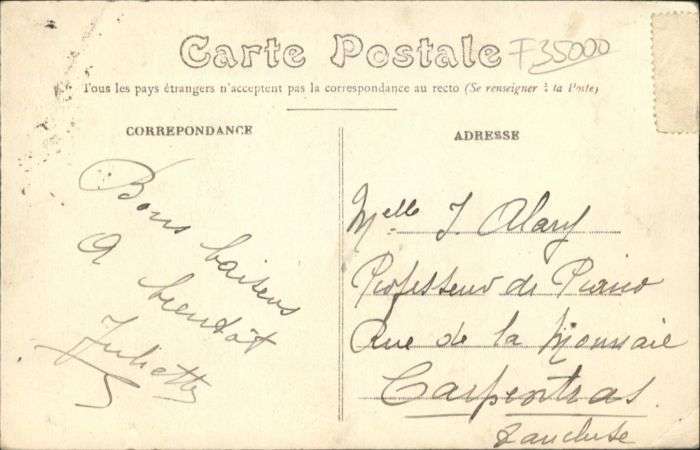 Carte Postale
F35000
Tous les pays étrangers n'acceptent pas la correspondance au recto (Se renseigner à la Poste)
CORREPONDANCE
ADRESSE
Bons baisers
A bientôt
Juliette
Melle J. Alary
Professeur de Piano
Rue de la Monnaie
Carpentras
Vaucluse